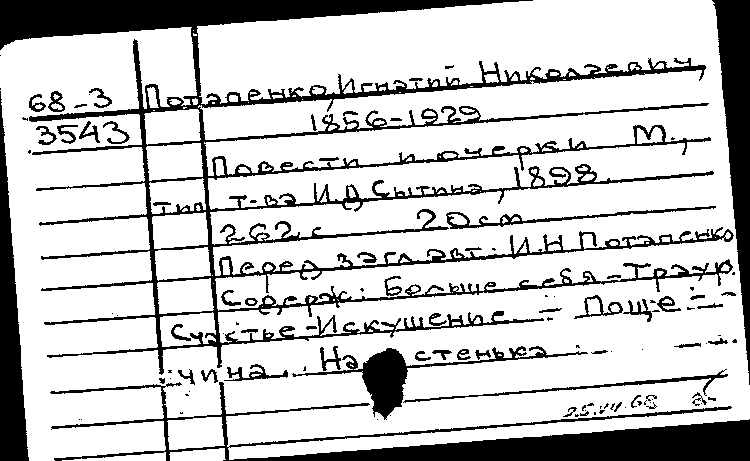 68-3 Потапенко, Игнатий Николаевич,
3543 1856-1929
Повести и очерки М.,
тип. т-ва И.Д. Сытина, 1898.
262 с 20 см
Перед загл авт: И.Н Потапенко
Содерж: Больше себя.-Траур.
Счастье-Искушение - Поще-
чина. стенька
68